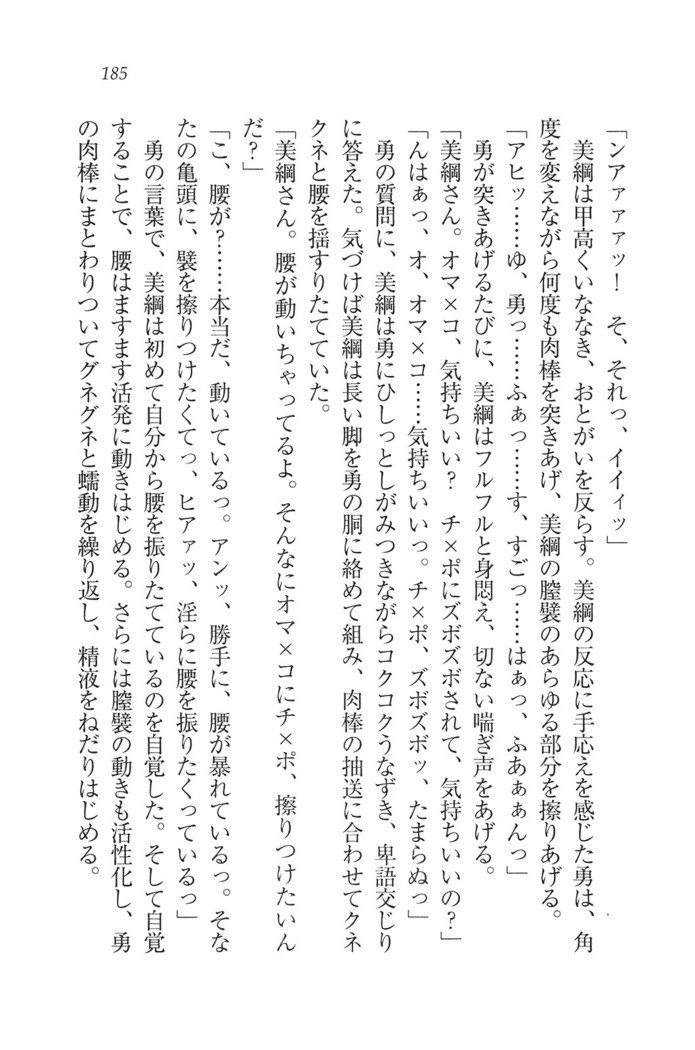 185
「ンアァァァッ！　そ、それっ、イイィッ」
美綱は甲高くいななき、おとがいを反らす。美綱の反応に手応えを感じた勇は、角
度を変えながら何度も肉棒を突きあげ、美綱の膣襞のあらゆる部分を擦りあげる。
「アヒッ……ゆ、勇っ……ふぁっ……す、すごっ……はぁっ、ふあぁぁんっ」
勇が突きあげるたびに、美綱はフルフルと身悶え、切ない喘ぎ声をあげる。
「美綱さん。オマ×コ、気持ちいい？　チ×ポにズボズボされて、気持ちいいの？」
「んはぁっ、オ、オマ×コ……気持ちいいっ。チ×ポ、ズボズボッ、たまらぬっ」
勇の質問に、美綱は勇にひしっとしがみつきながらコクコクうなずき、卑語交じり
に答えた。気づけば美綱は長い脚を勇の胴に絡めて組み、肉棒の抽送に合わせてクネ
クネと腰を揺すりたてていた。
「美綱さん。腰が動いちゃってるよ。そんなにオマ×コにチ×ポ、擦りつけたいん
だ？」
「こ、腰が？……本当だ、動いているっ。アンッ、勝手に、腰が暴れているっ。そな
たの亀頭に、襞を擦りつけたくてっ、ヒアァッ、淫らに腰を振りたくっているっ」
勇の言葉で、美綱は初めて自分から腰を振りたてているのを自覚した。そして自覚
することで、腰はますます活発に動きはじめる。さらには膣襞の動きも活性化し、勇
の肉棒にまとわりついてグネグネと蠕動を繰り返し、精液をねだりはじめる。